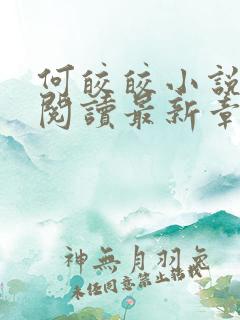 何皎皎小說
閱讀最新章
神無月羽兔
未經同意禁止轉載